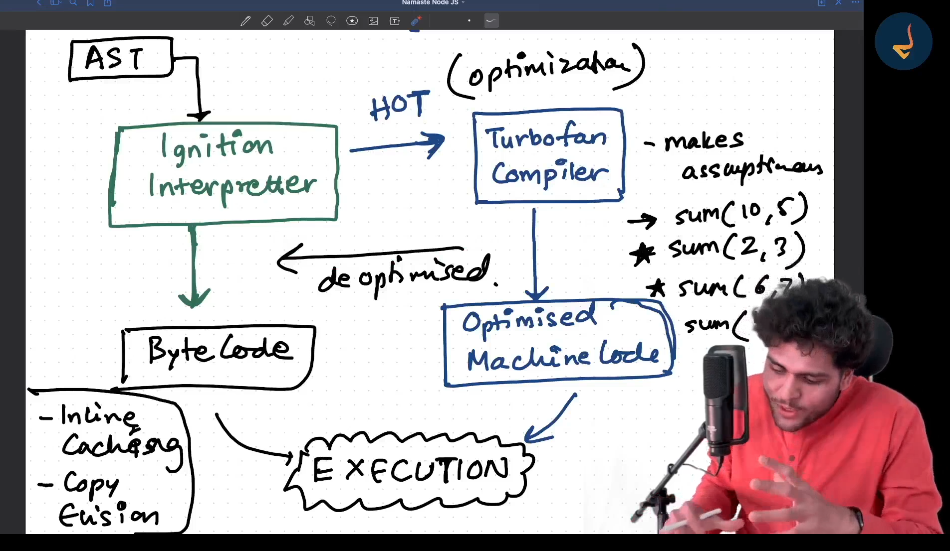 Namaste Node JS
AST
(optimization)
HOT
Ignition
Interpretter
Turbofan
Compiler
- makes
assumptions
→ sum(10,5)
★ sum(2,3)
★ sum(6,7)
sum(
deoptimised.
Optimised
Machine Code
Byte Code
- Inline
Caching
- Copy
Elision
EXECUTION